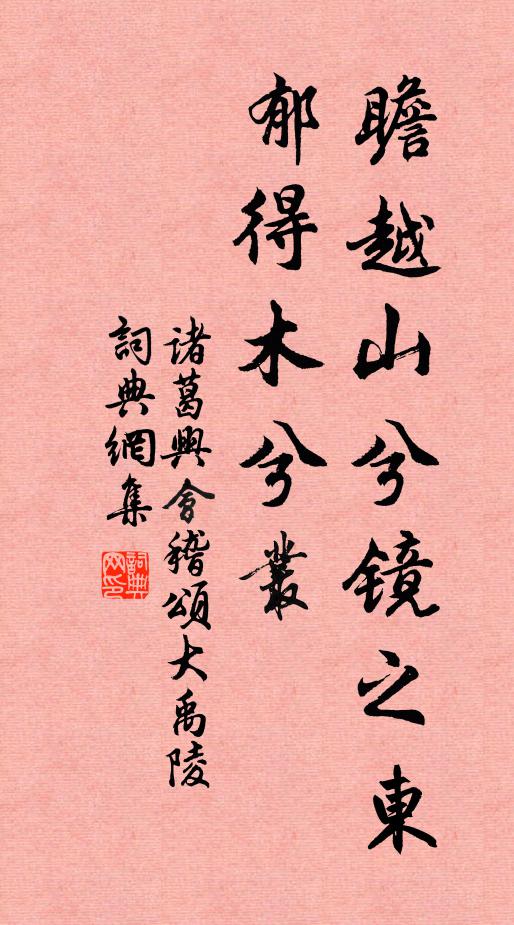 瞻越山兮镜之東
郁得木兮叢
诸葛興會稽頌大禹陵
詞典網集
詞典网印